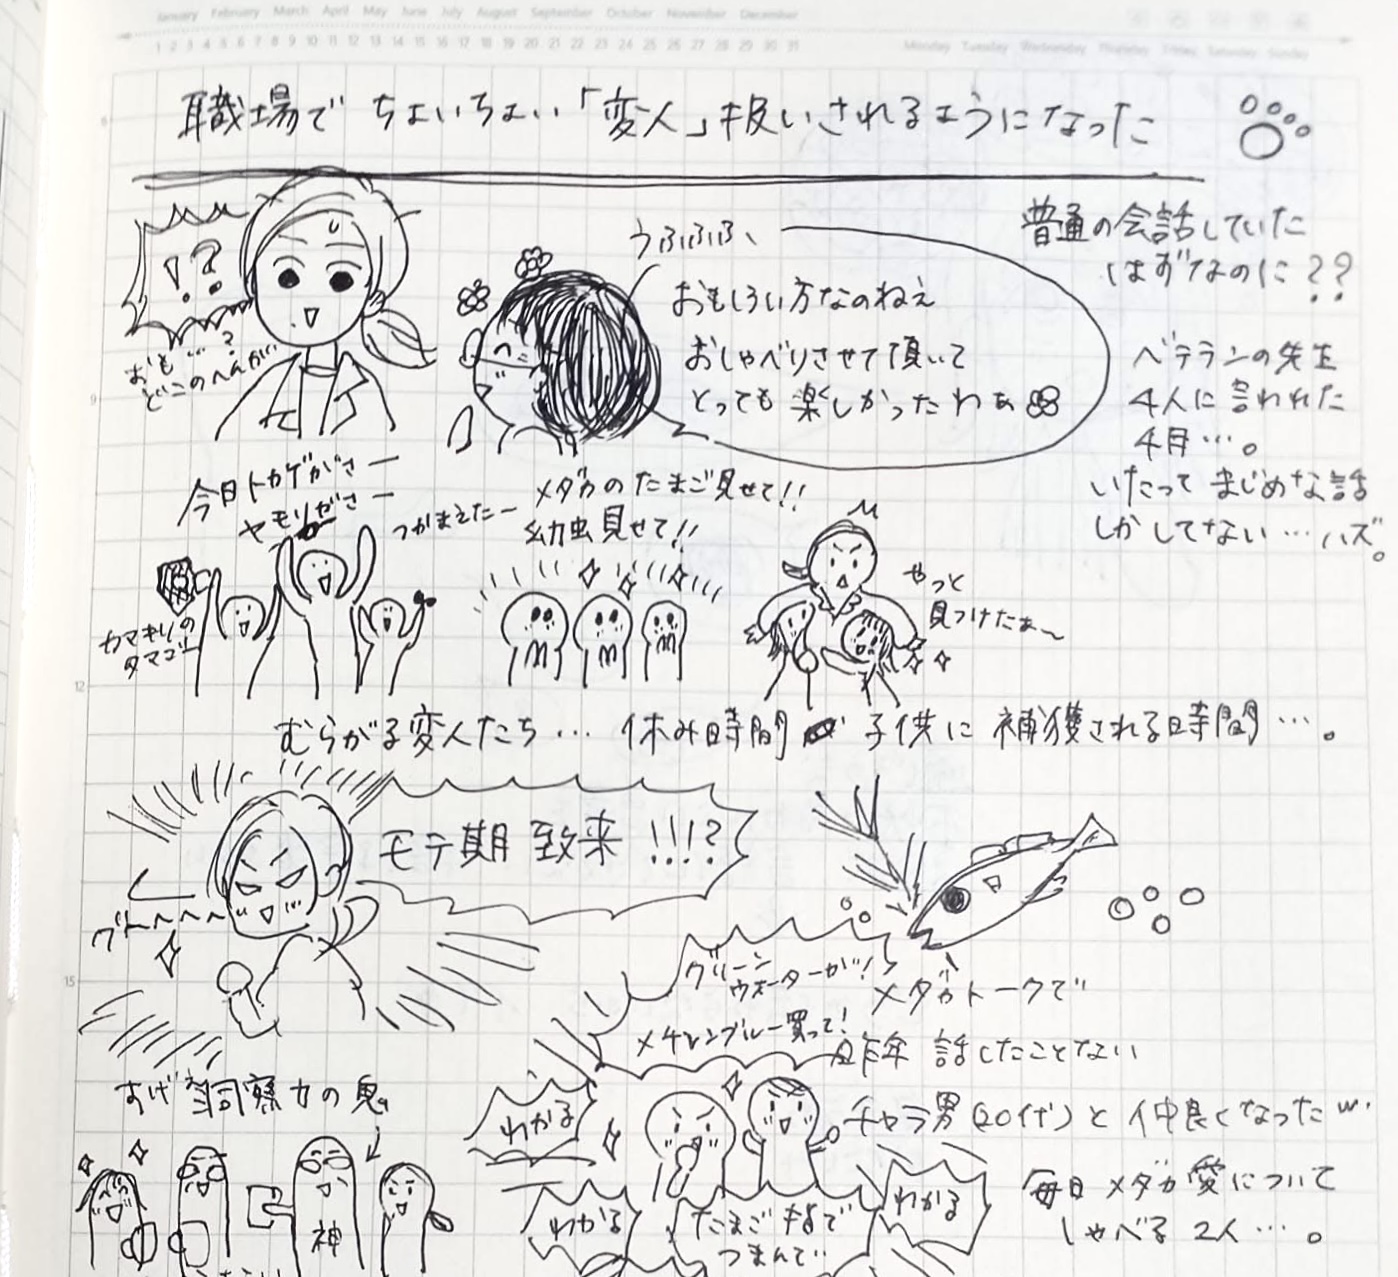 January February March April May June July August September October November December
1 2 3 4 5 6 7 8 9 10 11 12 13 14 15 16 17 18 19 20 21 22 23 24 25 26 27 28 29 30 31
Monday Tuesday Wednesday Thursday Friday Saturday Sunday
職場で ちょいちょい「変人」扱いされるようになった
!?
おも…?
どこのへんがい
うふふふ、
おもしろい方なのねえ
おしゃべりさせて頂いて
とっても楽しかったわぁ
普通の会話していた
はずなのに??
ベテランの先生
4人に言われた
4月…。
いたってまじめな話
しかしてない…ハズ。
9
今日トカゲがさー
ヤモリがさー
つかまえたー
カマキリの
タマゴー
メダカのたまご見せて!!
幼虫見せて!!
やっと
見つけたぁ〜
12
むらがる変人たち… 休み時間 子供に補獲される時間…。
モテ期致来!!!?
グヘヘヘヘ
グリーン
ウォーターが!
メチレンブルー買って!
メダカトークで
昨年話したことない
チャラ男(20代)と仲良くなったw.
毎日メダカ愛について
しゃべる2人…。
15
すげえ洞察力の鬼。
神
わかる
わかる
たまご指で
つまんで…
わかる